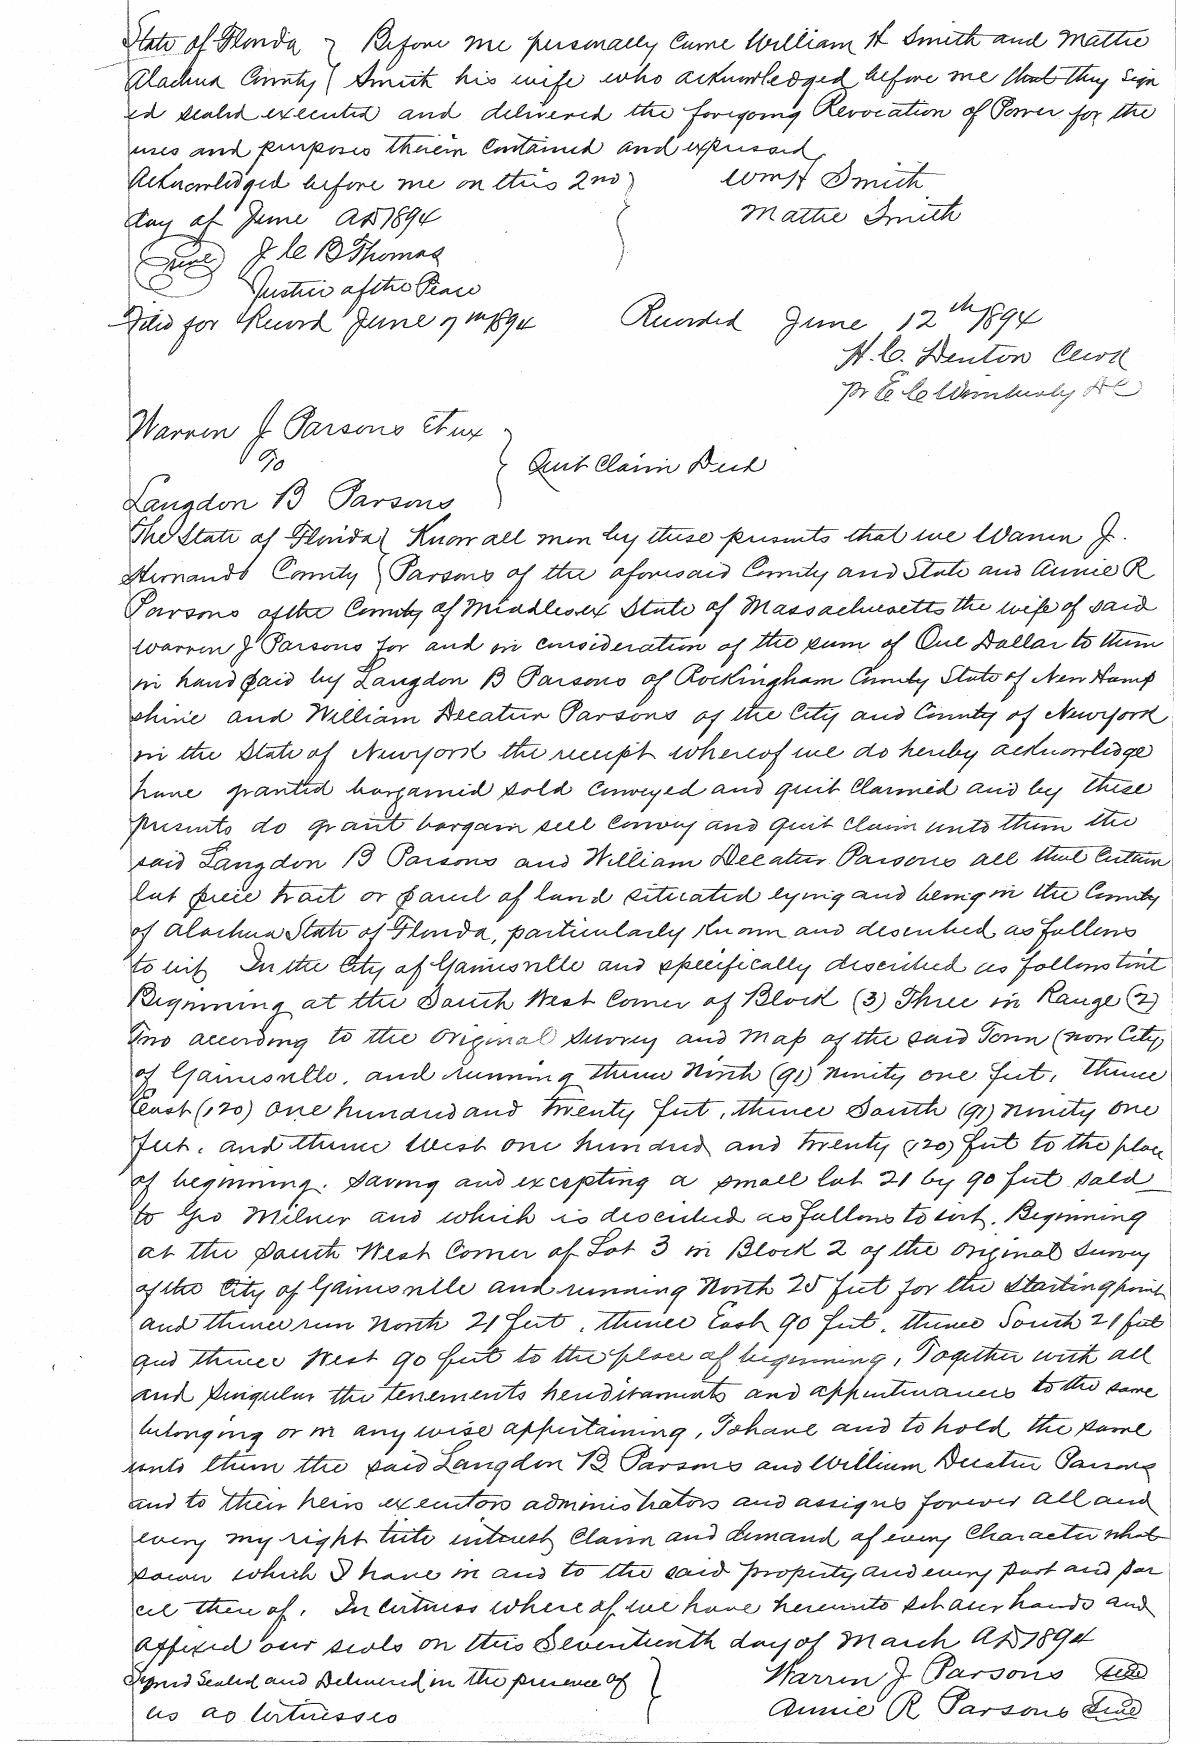 State of Florida } Before me personally came William H Smith and Mattie
Alachua County { Smith his wife who acknowledged before me that they sign
ed sealed executed and delivered the foregoing Revocation of Power for the
uses and purposes therein contained and expressed,
Acknowledged before me on this 2nd } Wm H Smith
day of June AD 1894 Mattie Smith
Seal J C B Thomas
Justice of the Peace
Filed for Record June 7th 1894 Recorded June 12th 1894
H. C. Denton Clerk
pr E C Wimberly DC
Warren J Parsons et ux
To } Quit Claim Deed
Langdon B Parsons
The State of Florida { Know all men by these presents that we Warren J.
Hernando County { Parsons of the aforesaid County and State and Annie R
Parsons of the County of Middlesex State of Massachusetts the wife of said
Warren J Parsons for and in consideration of the sum of One Dollar to them
in hand paid by Langdon B Parsons of Rockingham County State of New Hamp
shire and William Decatur Parsons of the City and County of New york
in the State of New york the receipt whereof we do hereby acknowledge
have granted bargained sold conveyed and quit claimed and by these
presents do grant bargain sell convey and quit claim unto them the
said Langdon B Parsons and William Decatur Parsons all that certain
lot piece tract or parcel of land situated lying and being in the County
of Alachua State of Florida, particularly known and described as follows
to wit In the City of Gainesville and specifically described as follows towit
Beginning at the South West Corner of Block (3) Three in Range (2)
Two according to the original survey and map of the said Town (now City)
of Gainesville, and running thence North (91) ninety one feet, thence
East (120) one hundred and twenty feet, thence South (91) ninety one
feet, and thence West one hundred and twenty (120) feet to the place
of beginning. Saving and excepting a small lot 21 by 90 feet sold
to Geo Milner and which is described as follows to wit. Beginning
at the South West Corner of Lot 3 in Block 2 of the original survey
of the City of Gainesville and running North 25 feet for the starting point
and thence run North 21 feet, thence East 90 feet, thence South 21 feet
and thence West 90 feet to the place of beginning, Together with all
and singular the tenements hereditaments and appurtenances to the same
belonging or in any wise appertaining, To have and to hold the same
unto them the said Langdon B Parsons and William Decatur Parsons
and to their heirs executors administrators and assigns forever all and
every my right title interest claim and demand of every character what
soever which I have in and to the said property and every part and par
cel there of. In witness where of we have hereunto set our hands and
affixed our seals on this Seventeenth day of March AD 1894
Signed Sealed and Delivered in the presence of } Warren J Parsons Seal
us as witnesses Annie R Parsons Seal